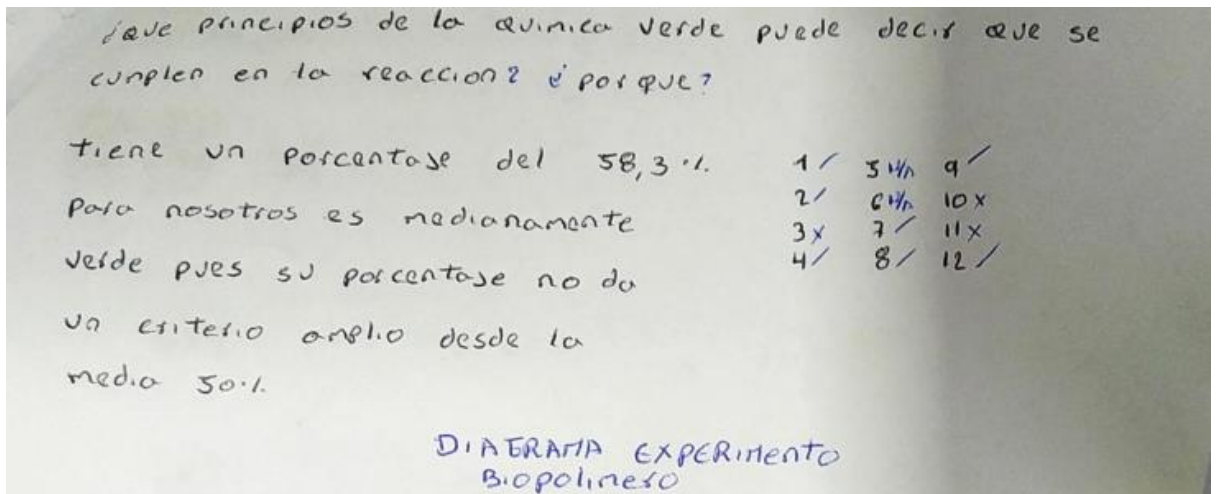 ¿que principios de la quimica verde puede decir que se
cumplen en la reaccion? ¿porque?
tiene un porcentaje del 58,3 %. 1 ✓ 5 N/A 9 ✓
para nosotros es medianamente 2 ✓ 6 N/A 10 x
verde pues su porcentaje no da 3 x 7 ✓ 11 x
un criterio amplio desde la 4 ✓ 8 ✓ 12 ✓
media 50 %.
DIAGRAMA EXPERIMENTO
Biopolimero